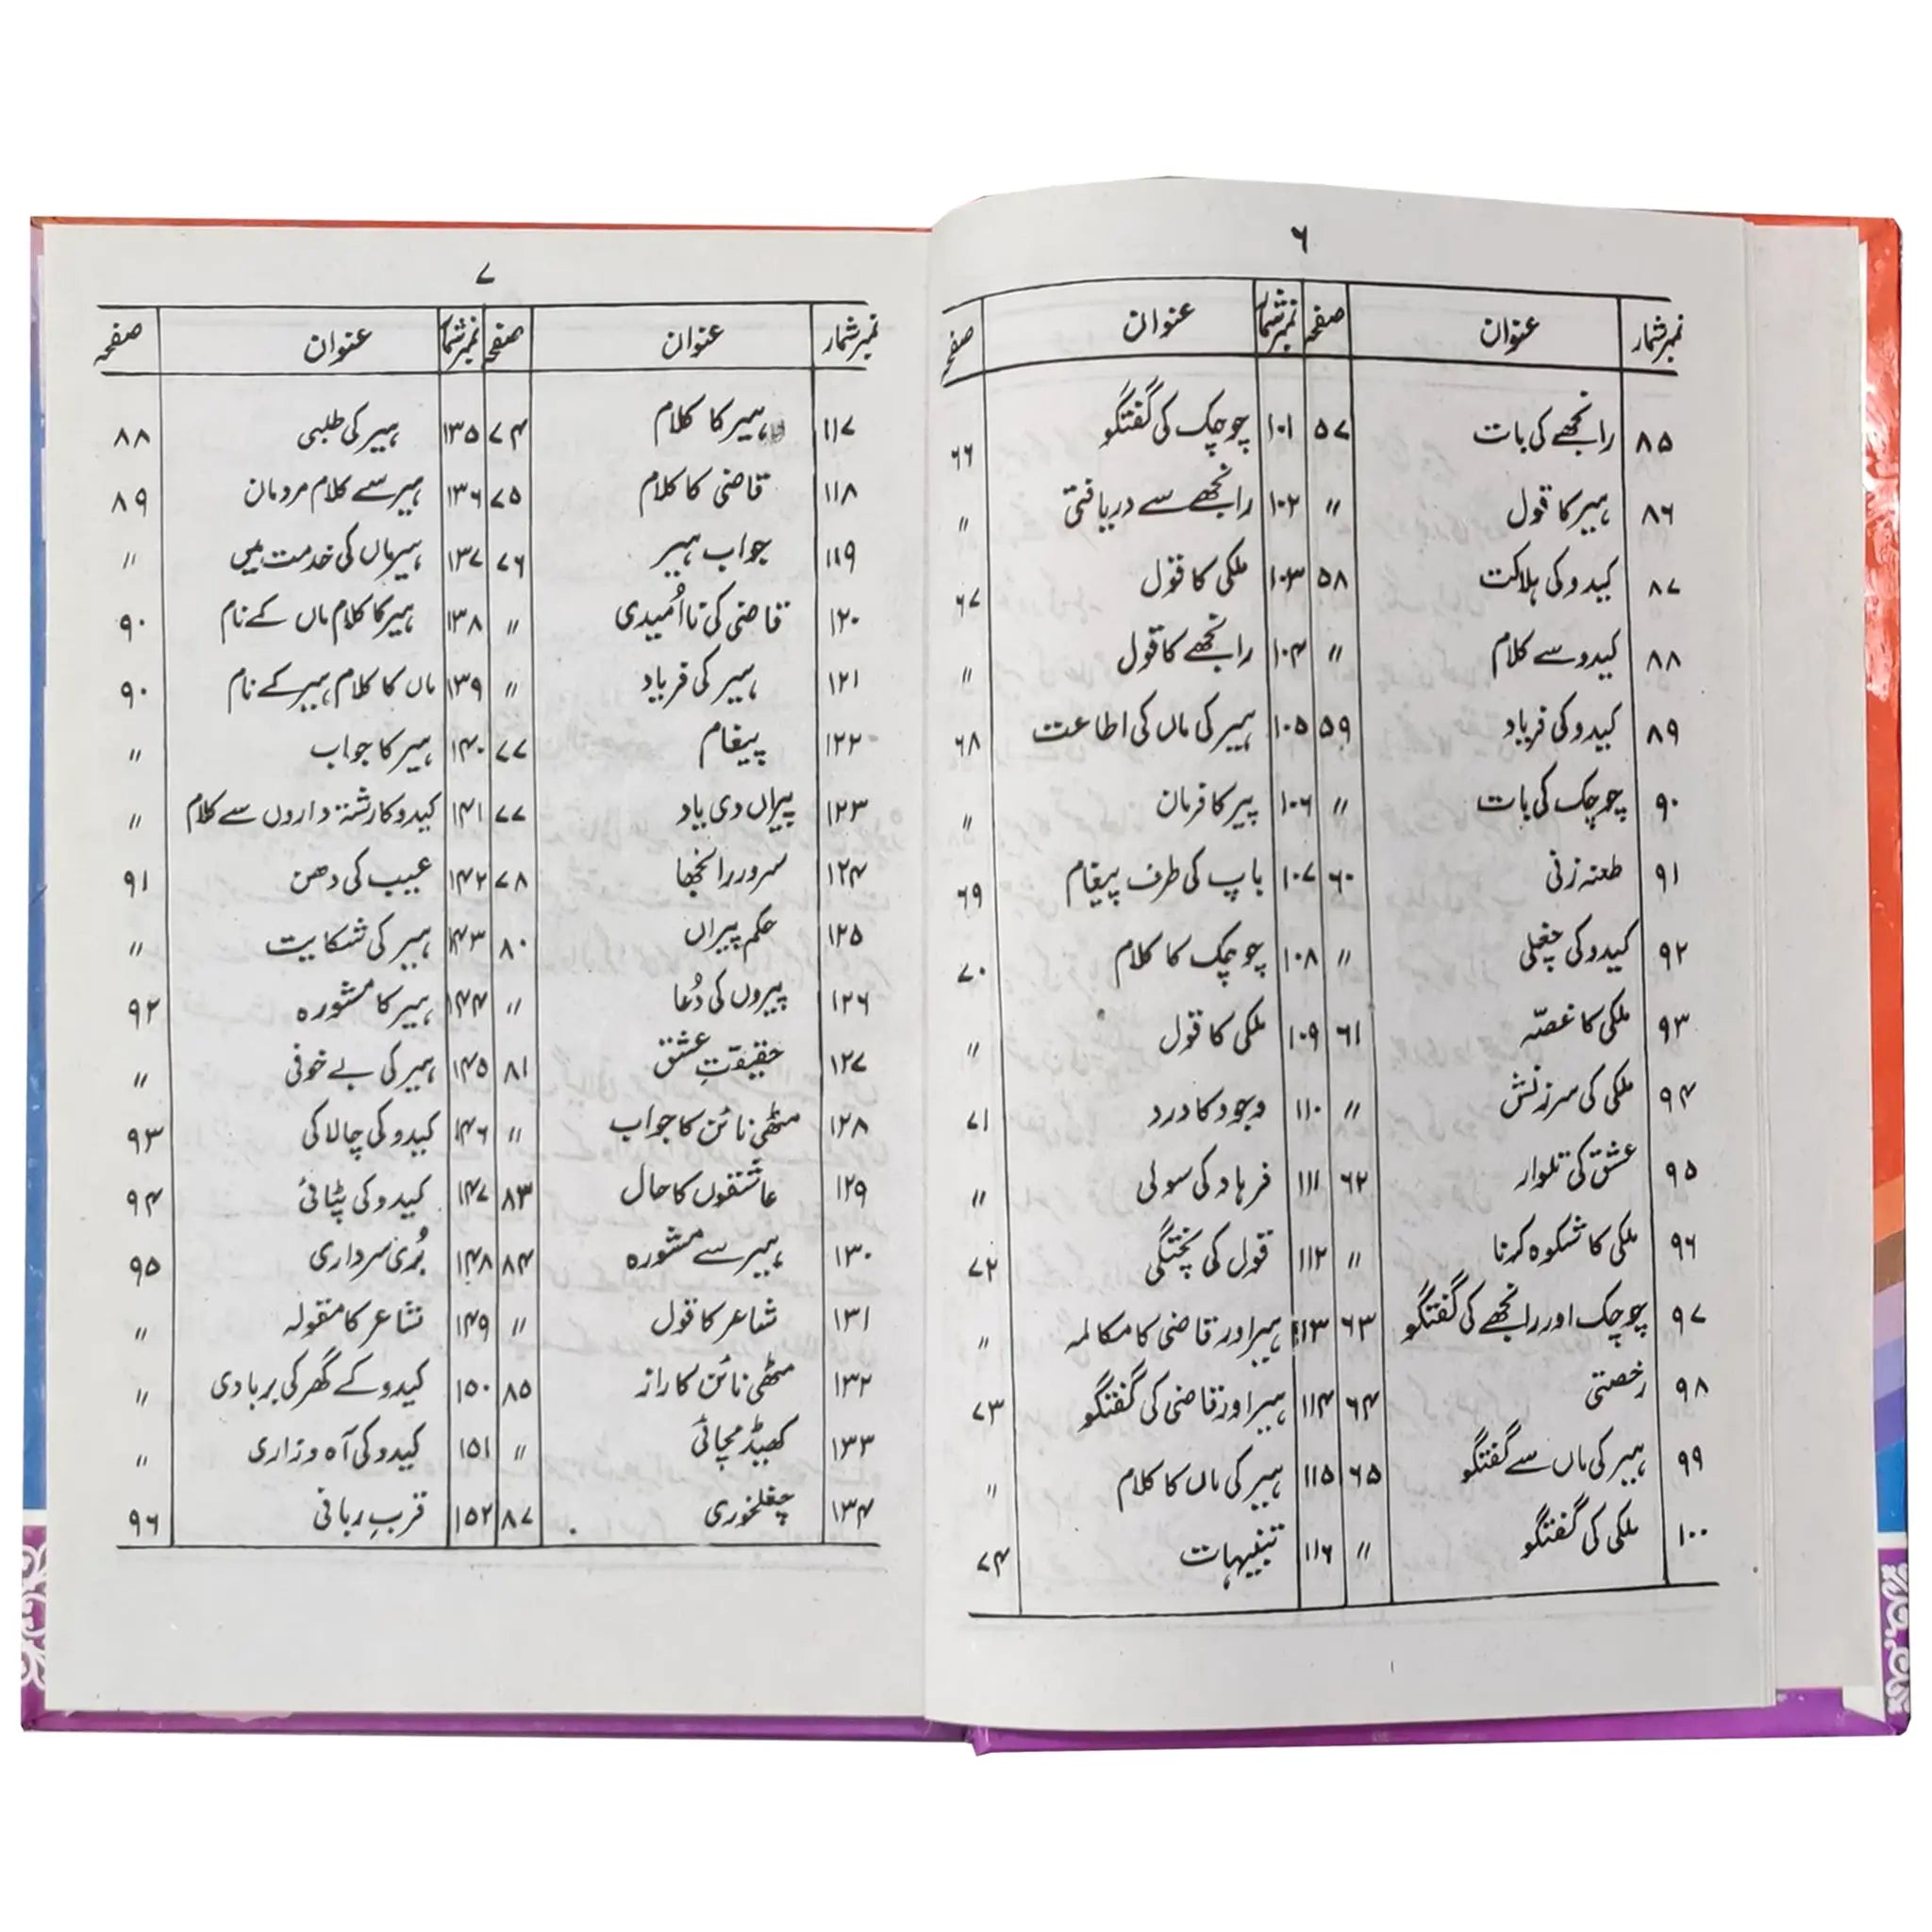 ۶
نمبر شمار عنوان صفحہ نمبر شمار عنوان صفحہ
۸۵ رانجھے کی بات ۵۷ ۱۰۱ چوچک کی گفتگو ۶۶
۸۶ ہیر کا قول 〃 ۱۰۲ رانجھے سے دریافتی 〃
۸۷ کیدو کی ہلاکت ۵۸ ۱۰۳ ملکی کا قول ۶۷
۸۸ کیدو سے کلام 〃 ۱۰۴ رانجھے کا قول 〃
۸۹ کیدو کی فریاد ۵۹ ۱۰۵ ہیر کی ماں کی اطاعت ۶۸
۹۰ چوچک کی بات 〃 ۱۰۶ پیر کا فرمان 〃
۹۱ طعنہ زنی ۶۰ ۱۰۷ باپ کی طرف پیغام ۶۹
۹۲ کیدو کی چغلی 〃 ۱۰۸ چوچک کا کلام ۷۰
۹۳ ملکی کا غصّہ ۶۱ ۱۰۹ ملکی کا قول 〃
۹۴ ملکی کی سرزنش 〃 ۱۱۰ وجود کا درد ۷۱
۹۵ عشق کی تلوار ۶۲ ۱۱۱ فرہاد کی سولی 〃
۹۶ ملکی کا شکوہ کرنا 〃 ۱۱۲ قول کی پختگی ۷۲
۹۷ چوچک اور رانجھے کی گفتگو ۶۳ ۱۱۳ ہیر اور قاضی کا مکالمہ 〃
۹۸ رخصتی ۶۴ ۱۱۴ ہیر اور قاضی کی گفتگو ۷۳
۹۹ ہیر کی ماں سے گفتگو ۶۵ ۱۱۵ ہیر کی ماں کا کلام 〃
۱۰۰ ملکی کی گفتگو 〃 ۱۱۶ تنبیہات ۷۴
۷
نمبر شمار عنوان صفحہ نمبر شمار عنوان صفحہ
۱۱۷ ہیر کا کلام ۷۴ ۱۳۵ ہیر کی طلبی ۸۸
۱۱۸ قاضی کا کلام ۷۵ ۱۳۶ ہیر سے کلام مردمان ۸۹
۱۱۹ جواب ہیر ۷۶ ۱۳۷ ہیر ماں کی خدمت میں 〃
۱۲۰ قاضی کی نا اُمیدی 〃 ۱۳۸ ہیر کا کلام ماں کے نام ۹۰
۱۲۱ ہیر کی فریاد 〃 ۱۳۹ ماں کا کلام ہیر کے نام ۹۰
۱۲۲ پیغام ۷۷ ۱۴۰ ہیر کا جواب 〃
۱۲۳ پیراں دی یاد ۷۷ ۱۴۱ کیدو کا رشتہ داروں سے کلام 〃
۱۲۴ سرور رانجھا ۷۸ ۱۴۲ عیب کی دھن ۹۱
۱۲۵ حکم پیراں ۸۰ ۱۴۳ ہیر کی شکایت 〃
۱۲۶ پیروں کی دُعا 〃 ۱۴۴ ہیر کا مشورہ ۹۲
۱۲۷ حقیقتِ عشق ۸۱ ۱۴۵ ہیر کی بے خوفی 〃
۱۲۸ مٹھی نائن کا جواب 〃 ۱۴۶ کیدو کی چالاکی ۹۳
۱۲۹ عاشقوں کا حال ۸۳ ۱۴۷ کیدو کی پٹائی ۹۴
۱۳۰ ہیر سے مشورہ ۸۴ ۱۴۸ بُری سرداری ۹۵
۱۳۱ شاعر کا قول 〃 ۱۴۹ شاعر کا مقولہ 〃
۱۳۲ مٹھی نائن کا راز ۸۵ ۱۵۰ کیدو کے گھر کی بربادی 〃
۱۳۳ کھیڈ مچائی 〃 ۱۵۱ کیدو کی آہ و زاری 〃
۱۳۴ چغلخوری ۸۷ ۱۵۲ قربِ ربانی ۹۶